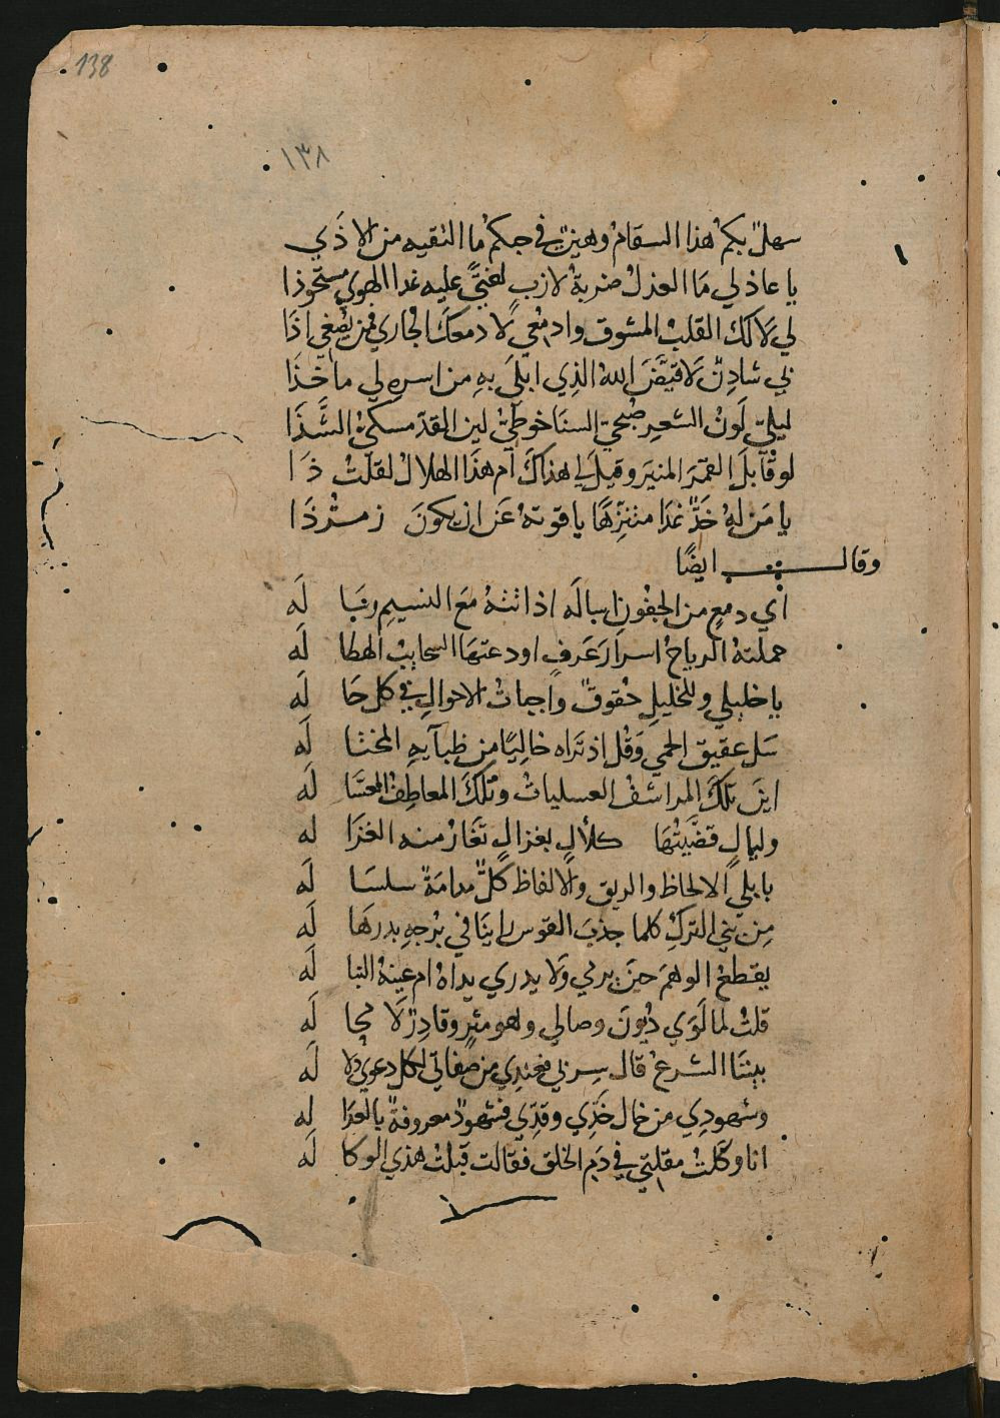 138
١٣٨
سهلٌ بكم هذا السقامُ وهينٌ في حبكم ما التقيه من الاذَي
يا عاذلي مَا العذلُ ضربةُ لازبٍ لفتيً عليه غدا الهوي مستحوذا
لي لَا لكَ القلبُ المشوق وادمعي لَا دمعكَ الجاري فمن يُصْغي اذَا
بي شادِنٌ لَا قيَّضَ اللهُ الذي ابلَي بهِ من اسره لي ماخَذَا
ليليّ لَونُ الشعرِ صُبحيّ السنَا خوطيّ لين القدّ مسكيُّ الشَّذَا
لو قابلَ القمَرَ المنيرَ وقيلَ لي اهذاكَ ام هذَا الهلالُ لقلتُ ذَا
يا مَن لهُ خَدٌّ غدَا متنزِّهًا ياقوتهُ عَن ان يكونَ زمرّذَا
وقال ايضًا
اي دمعٍ من الجفُونِ اسالَه اذ اتتهُ معَ النسيمِ رسَالَه
حملتهُ الرياحُ اسرارَ عَرفٍ اودعتهَا السحايبُ الهطالَه
يا خليلي وللخليلِ حُقوقٌ واجباتُ الاحوالِ في كل حَالَه
سَل عقيق الحمي وَقُل اذ تَراه خاليًا من ظبآيهِ المختالَه
اينَ تلكَ المراشفُ العسلياتُ وتلكَ المعاطِفُ العسَّالَه
وليالٍ قضَّيتُهَا كلألٍ بغزالٍ تغَارُ منه الغزَاله
بابليِّ الالحاظ والريق والالفاظ كلٌّ مدامَةٌ سلسَالَه
مِن بني التركِ كلما جذبَ القوس راينَا في بُرجهِ بدرَهَالَه
يقطعُ الوهمَ حينَ يرمي وَلَا يدري يداهُ ام عينهُ النبالَه
قلتُ لما لَوَي دُيونَ وصالي وهو مثرٍ وقادِرٌ لَا مُحالَه
بيننَا الشرعُ قال سِر بي فعندِي من صفاتي لكل دعوي دلالَه
وشهودِي من خال خَدِّي وقدِّي فشهودٌ معروفةٌ بالعدَالَه
انا وكّلتُ مقلتي في دَمِ الخلق فقالت قبلتُ هذي الوكالَه